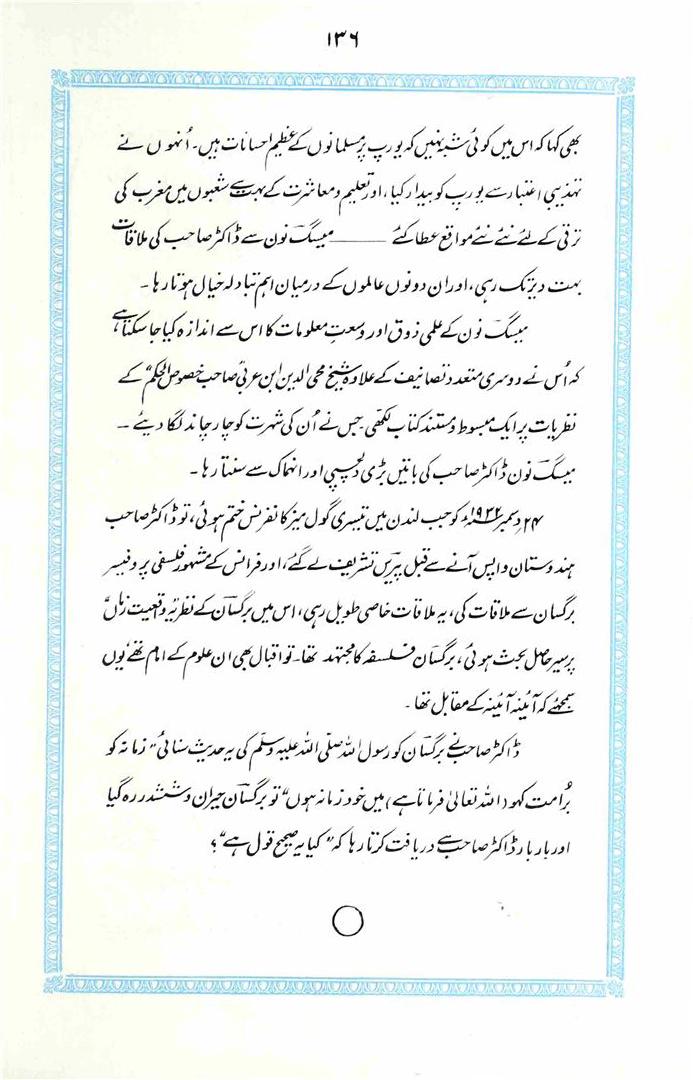 ۱۳۶
بھی کہا کہ اس میں کوئی شبہ نہیں کہ یورپ پر مسلمانوں کے عظیم احسانات ہیں۔ اُنہوں نے
تہذیبی اعتبار سے یورپ کو بیدار کیا، اور تعلیم و معاشرت کے بہت سے شعبوں میں مغرب کی
ترقی کے لئے نئے نئے مواقع عطا کئے ــــــــ میسگ نون سے ڈاکٹر صاحب کی ملاقات
بہت دیر تک رہی، اور ان دونوں عالموں کے درمیان اہم تبادلہ خیال ہوتا رہا۔
میسگ نون کے علمی ذوق اور وسعتِ معلومات کا اس سے اندازہ کیا جا سکتا ہے
کہ اُس نے دوسری متعدد تصانیف کے علاوہ شیخ محی الدین ابن عربی صاحب خصوص الحکم" کے
نظریات پر ایک مبسوط و مستند کتاب لکھی جس نے اُن کی شہرت کو چار چاند لگا دیئے ۔۔
میسگ نون ڈاکٹر صاحب کی باتیں بڑی دلچسپی اور انہماک سے سنتا رہا۔
۲۴ دسمبر ۱۹۳۲ء کو جب لندن میں تیسری گول میز کانفرنس ختم ہوئی، تو ڈاکٹر صاحب
ہندوستان واپس آنے سے قبل پیرس تشریف لے گئے، اور فرانس کے مشہور فلسفی پروفیسر
برگساں سے ملاقات کی، یہ ملاقات خاصی طویل رہی، اس میں برگساں کے نظریہ واقعیت زماں"
پر سیر حاصل بحث ہوئی، برگساں فلسفہ کا مجتہد تھا۔ تو اقبال بھی ان علوم کے امام تھے یوں
سمجھئے کہ آئینہ آئینہ کے مقابل تھا۔
ڈاکٹر صاحب نے برگساں کو رسول اللہ صلی اللہ علیہ وسلم کی یہ حدیث سنائی "زمانہ کو
بُرا مت کہو (اللہ تعالیٰ فرماتا ہے) میں خود زمانہ ہوں" تو برگساں حیران و ششدر رہ گیا
اور بار بار ڈاکٹر صاحب سے دریافت کرتا رہا کہ "کیا یہ صحیح قول ہے"؟